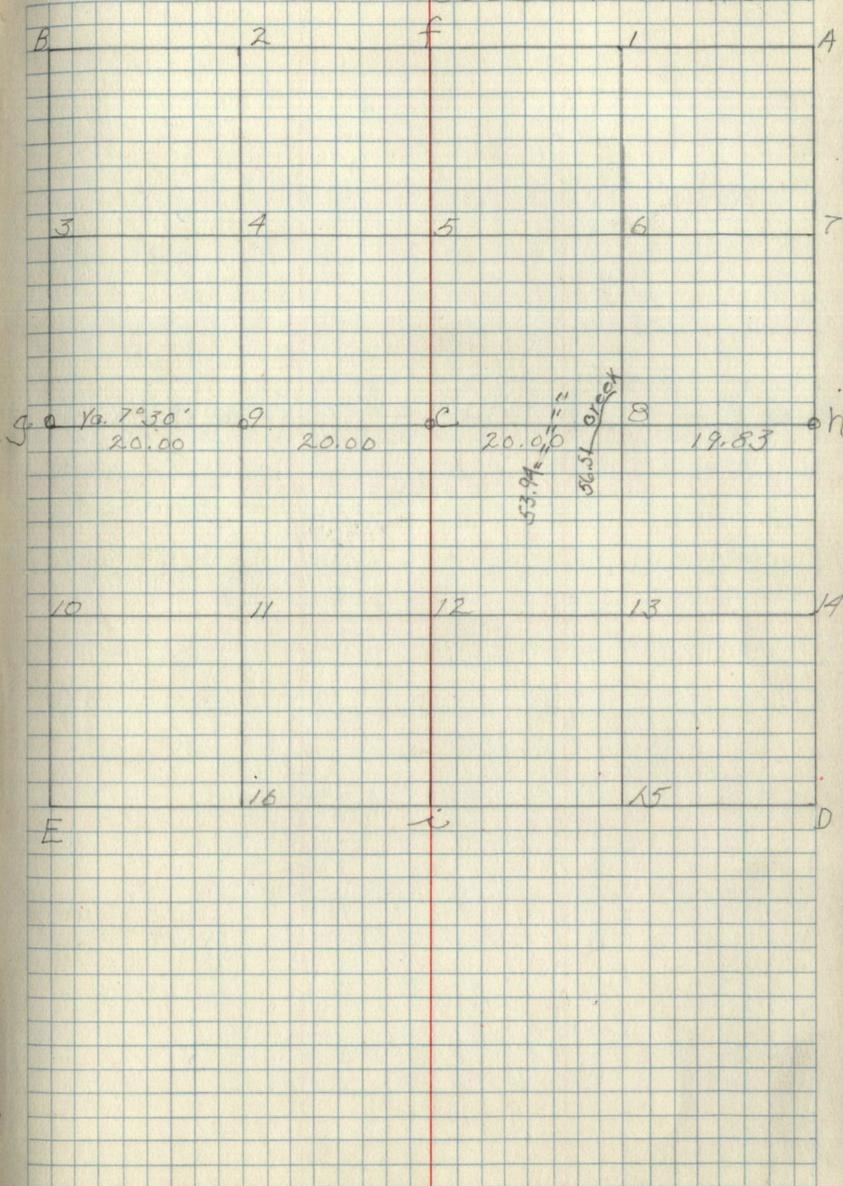 B 2 f 1 A
3 4 5 6 7
Creek
g Va. 7°30' 9 C 8 h
20.00 20.00 20.00 19.83
53.94
56.51
10 11 12 13 14
16 15
E i D